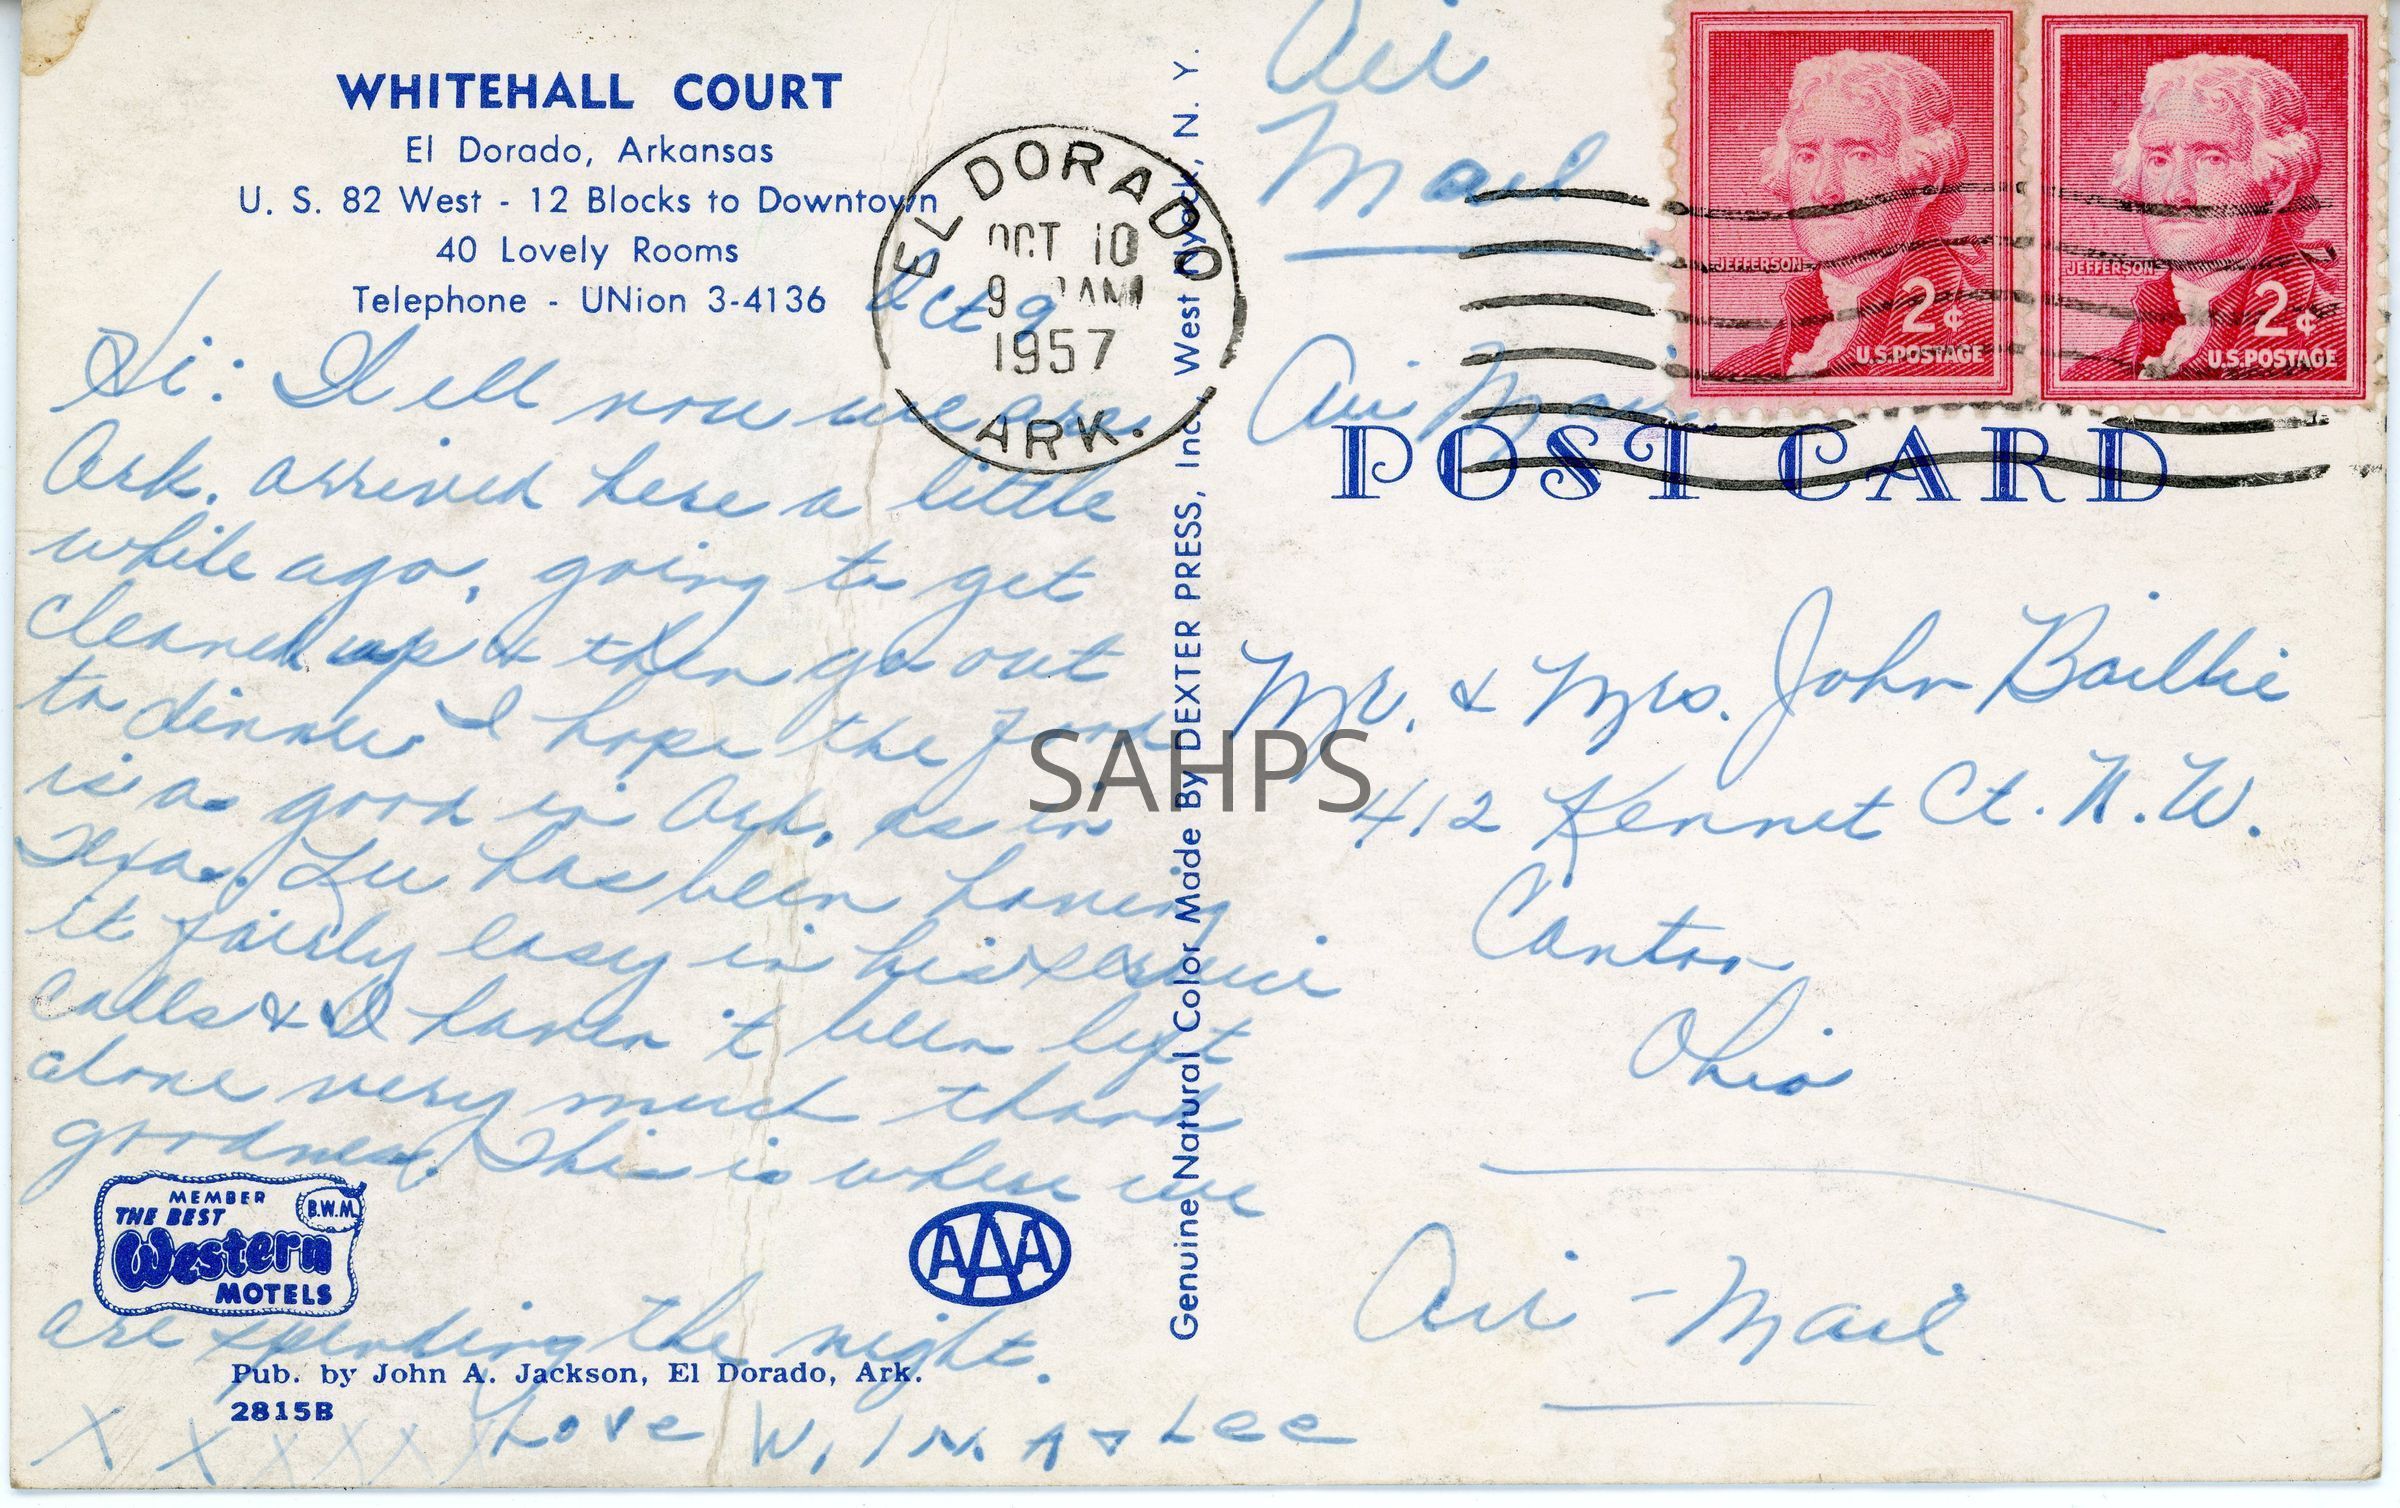 WHITEHALL COURT
El Dorado, Arkansas
U. S. 82 West - 12 Blocks to Downtown
40 Lovely Rooms
Telephone - UNion 3-4136
Oct 9
Hi: Well now we are
Ark. arrived here a little
while ago, going to get
cleaned up & then go out
to dinner I hope the food
is as good in Ark. as in
Texas. Lee has been having
it fairly easy in his service
calls & I haven't been left
alone very much thank
goodness. This is where we
are spending the night.
Love W. & Lee
X X X X X X X
MEMBER
THE BEST
Western
MOTELS
B.W.M.
AAA
Pub. by John A. Jackson, El Dorado, Ark.
2815B
Genuine Natural Color Made By DEXTER PRESS, Inc., West Nyack, N. Y.
EL DORADO
OCT 10
9 AM
1957
ARK.
Air
Mail
Air Mail
JEFFERSON
2¢
U.S. POSTAGE
JEFFERSON
2¢
U.S. POSTAGE
POST CARD
Mr. & Mrs. John Baillie
412 Kennet Ct. N.W.
Canton,
Ohio
Air - Mail
SAHPS